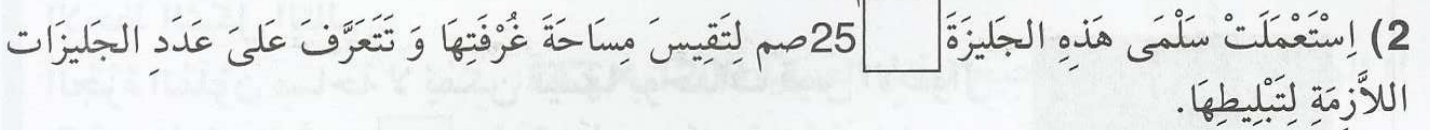 2) اِسْتَعْمَلَتْ سَلْمَى هَذِهِ الجَلِيزَةَ 25صم لِتَقِيسَ مِسَاحَةَ غُرْفَتِهَا وَ تَتَعَرَّفَ عَلىَ عَدَدِ الجَلِيزَات
اللاَّزِمَةِ لِتَبْلِيطِهَا.